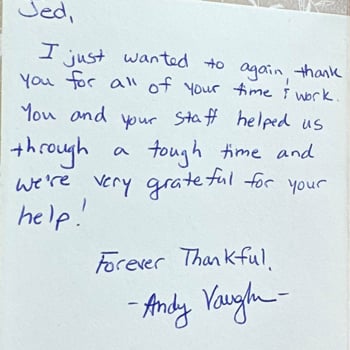 Jed,
I just wanted to again, thank
you for all of your time & work.
You and your staff helped us
through a tough time and
we're very grateful for your
help!
Forever Thankful,
-Andy Vaughn-